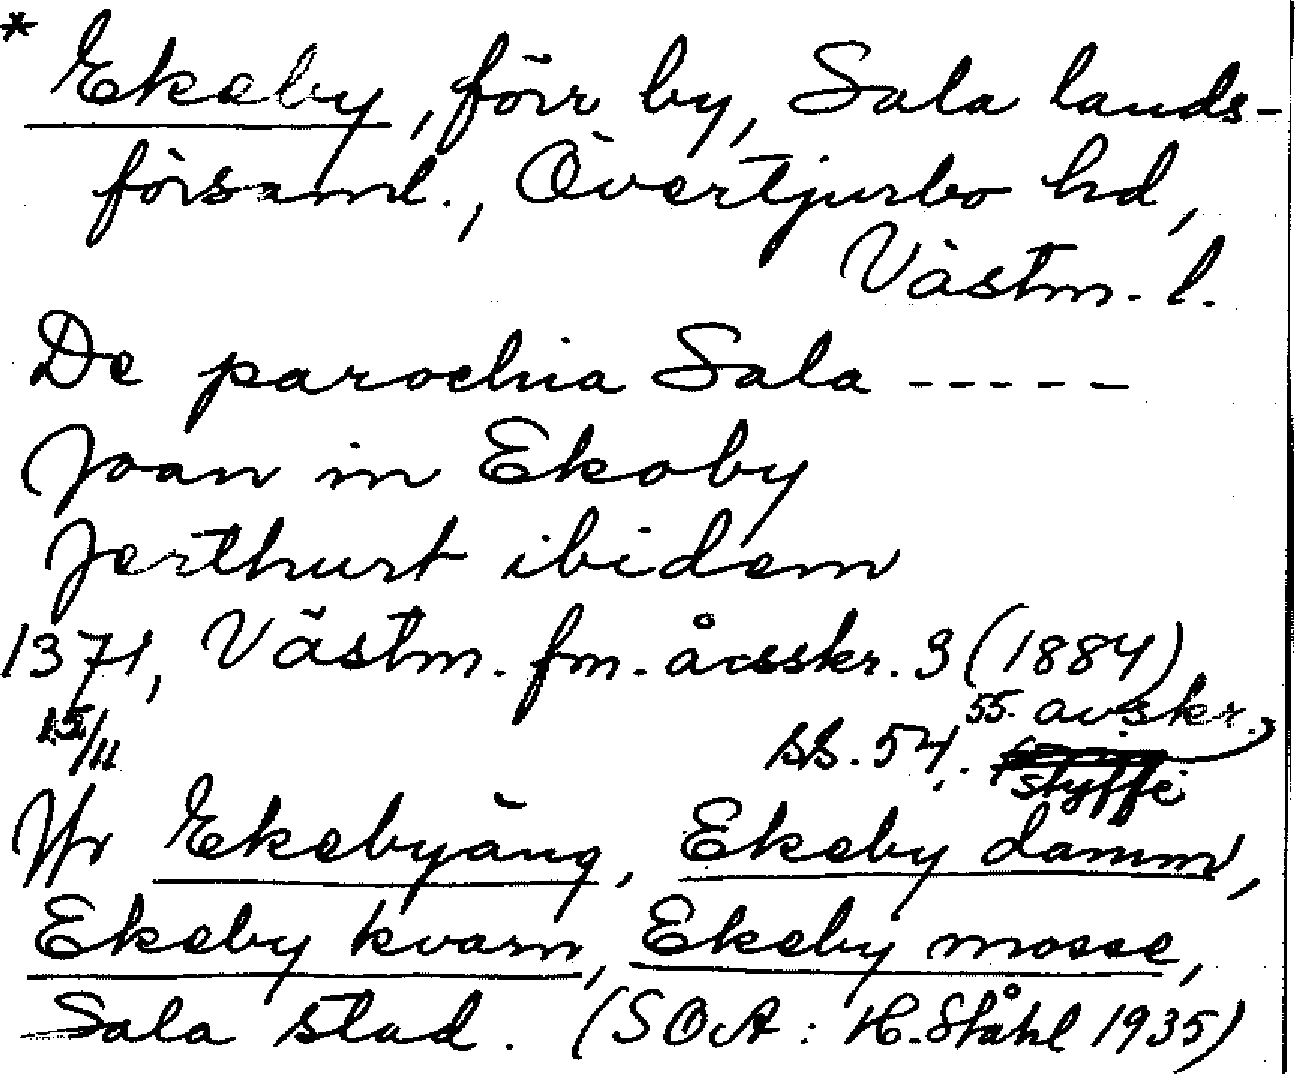 * Ekeby, förr by, Sala lands-
församl., Övertjurbo hd,
Västm. l.
De parochia Sala -----
Joan in Ekoby
Jerthurt ibidem
1371, Västm. fm. årsskr. 3 (1884)
15/11 ss. 54, 55. avskr.
Styffe
Jfr Ekebyäng, Ekeby damm,
Ekeby kvarn, Ekeby mosse,
Sala stad. (SOA: H. Ståhl 1935)